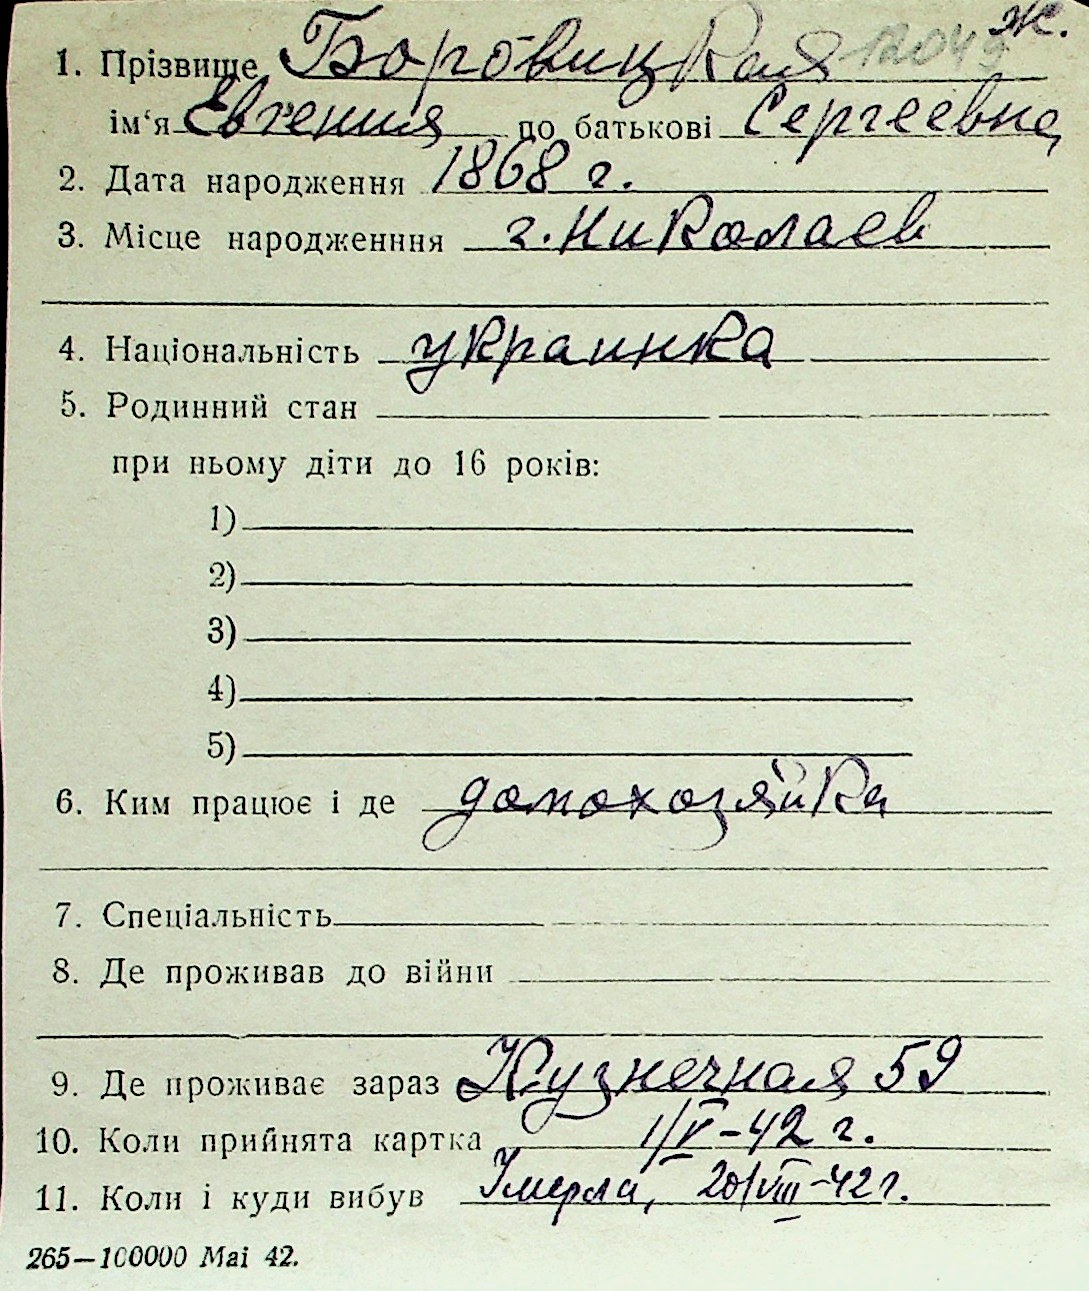 ж.
1. Прізвище Боровицкая 12049
ім‘я Евгения по батькові Сергеевна
2. Дата народження 1868 г.
3. Місце народженння г. Николаев
4. Національність украинка
5. Родинний стан
при ньому діти до 16 років:
1)
2)
3)
4)
5)
6. Ким працює і де домохозяйка
7. Спеціальність
8. Де проживав до війни
9. Де проживає зараз Кузнечная 59
10. Коли прийнята картка 1/V-42 г.
11. Коли і куди вибув Умерла, 20/VIII-42 г.
265—100000 Mai 42.